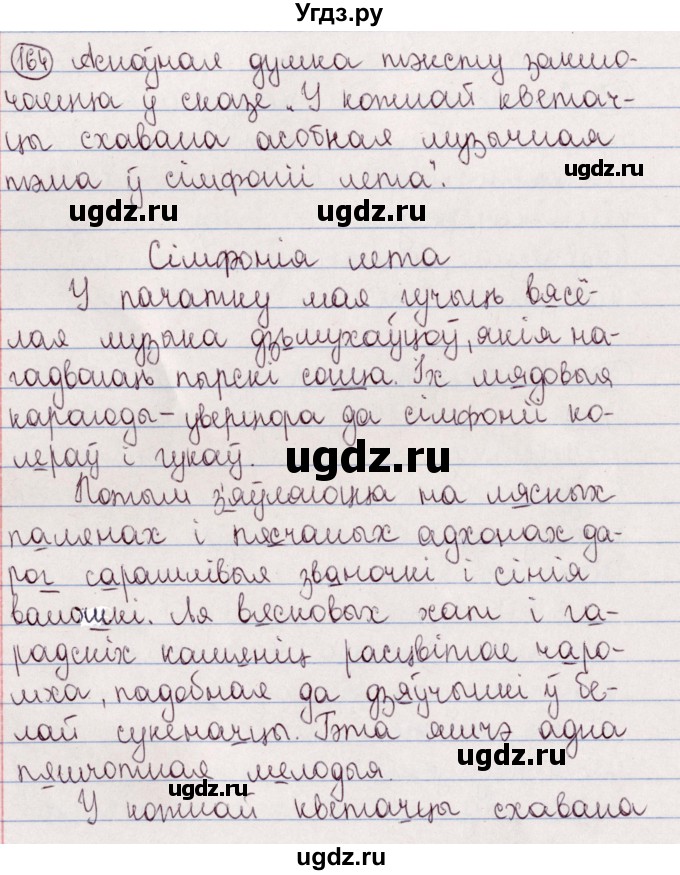 Угдз.ру
164 Асноўная думка тэксту заклю-
чаецца ў сказе „У кожнай кветач-
цы схавана асобная музычная
тэма ў сімфоніі лета".
ugdz.ru ugdz.ru ugdz.ru
Сімфонія лета
У пачатку мая гучыць вясё-
лая музыка дзьмухаўцоў, якія на-
гадваюць пырскі сонца. Іх мядовыя
карагоды – уверцюра да сімфоніі ко-
лераў і гукаў. ugdz.ru
Потым з'яўляюцца на лясных
палянах і пясчаных адхонах да-
рог сарамлівыя званочкі і сінія
валошкі. Ля вясковых хат і га-
радскіх камяніц расцвітае чаро-
мха, падобная да дзяўчынкі ў бе-
лай сукеначцы. Гэта яшчэ адна
ugdz.ru
пяшчотная мелодыя.
ugdz.ru
У кожнай кветачцы схавана
ugdz.ru